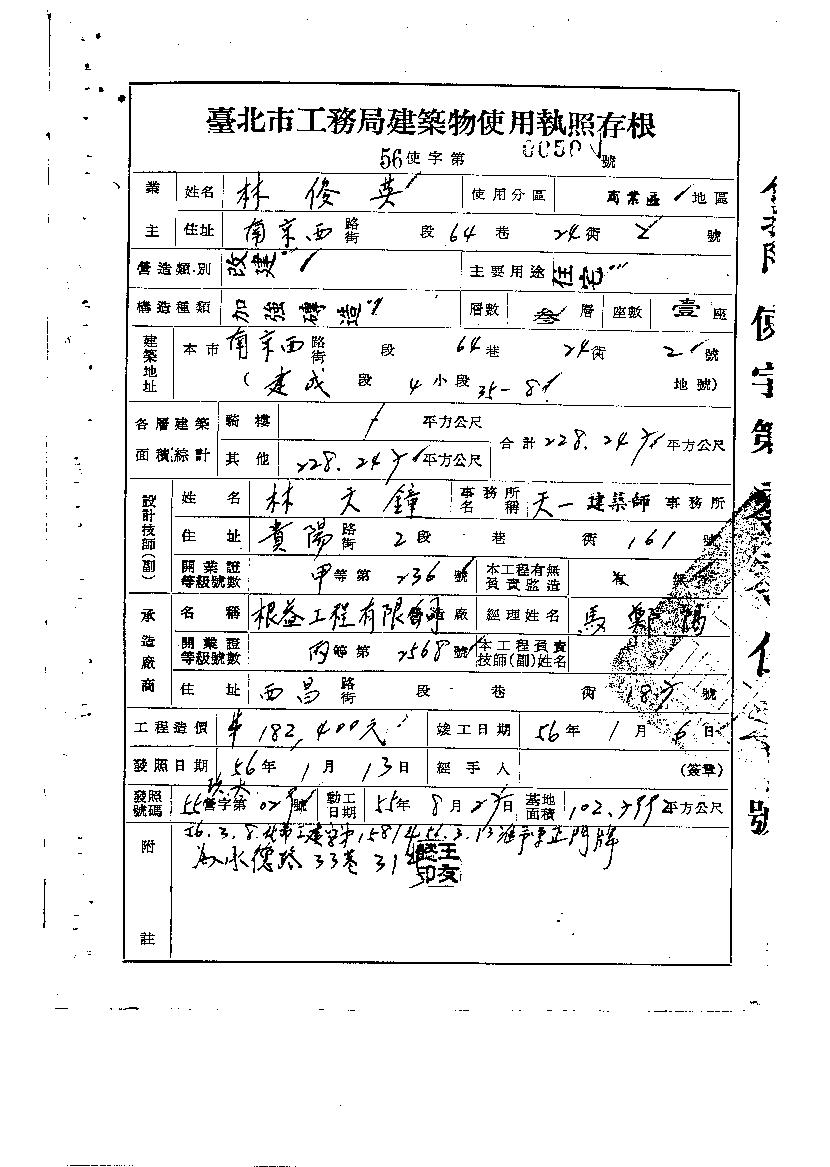 臺北市工務局建築物使用執照存根
56使字第 0050 號
業主 姓名 林俊英 使用分區 商業區 地區
住址 南京西 路街 段 64 巷 24 衖 2 號
營造類別 改建 主要用途 住宅
構造種類 加強磚造 層數 叁 層 座數 壹 座
建築地址 本市 南京西 路街 段 64 巷 24 衖 2 號
(建成 段 4 小段 35-8 地號)
各層建築面積綜計 騎樓 平方公尺 合計 228.24 平方公尺
其他 228.24 平方公尺
設計技師(副) 姓名 林天鐘 事務所名稱 天一建築師 事務所
住址 貴陽 路街 2段 巷 衖 161 號
開業證等級號數 甲等第 236 號 本工程有無負責監造 有 無
承造廠商 名稱 根益工程有限 造廠 經理姓名 馬鄭陽
開業證等級號數 丙等第 2568 號 本工程負責技師(副)姓名
住址 西昌 路街 段 巷 衖 號
工程造價 182,400元 竣工日期 56年 1月 6日
發照日期 56年 1月 13日 經手人 (簽章)
發照號碼 55營字第 號 動工日期 55年 8月 日 基地面積 平方公尺
附註 56.3.8.
為永德路33巷31
王友
印
使字第
號